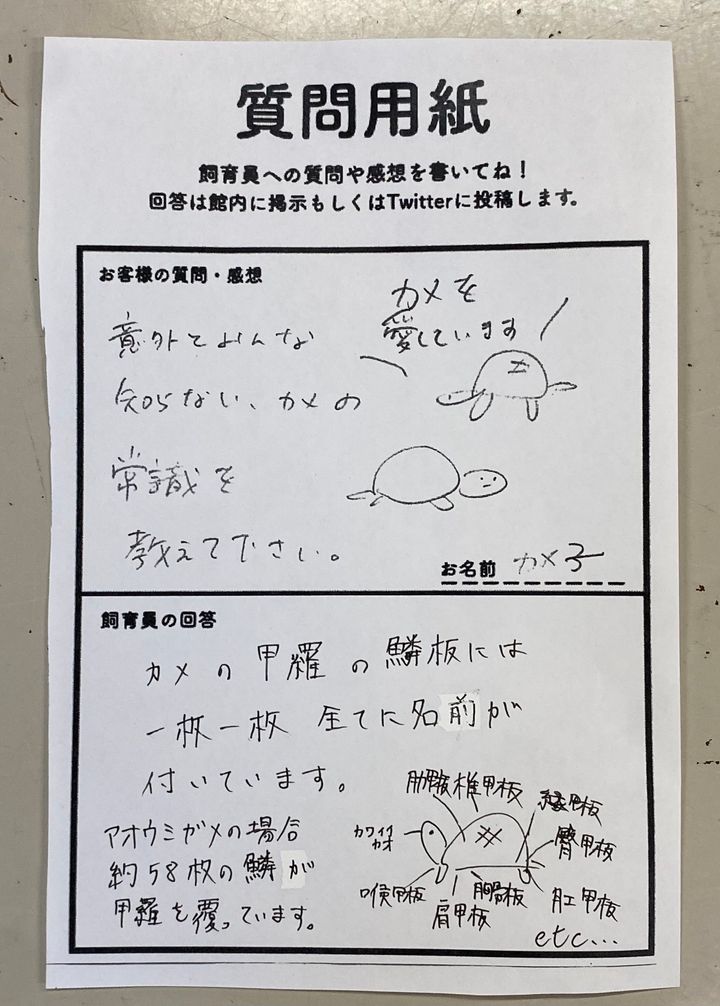 質問用紙
飼育員への質問や感想を書いてね！
回答は館内に掲示もしくはTwitterに投稿します。
お客様の質問・感想
意外とみんな
知らない、カメの
常識を
教えて下さい。
カメを
愛しています
お名前 カメ子
飼育員の回答
カメの甲羅の鱗板には
一枚一枚 全てに名前が
付いています。
アオウミガメの場合
約58枚の鱗が
甲羅を覆っています。
肋甲板 椎甲板 縁甲板
カワイイ
カオ
臀甲板
喉甲板
肩甲板
胸甲板
肛甲板
etc...